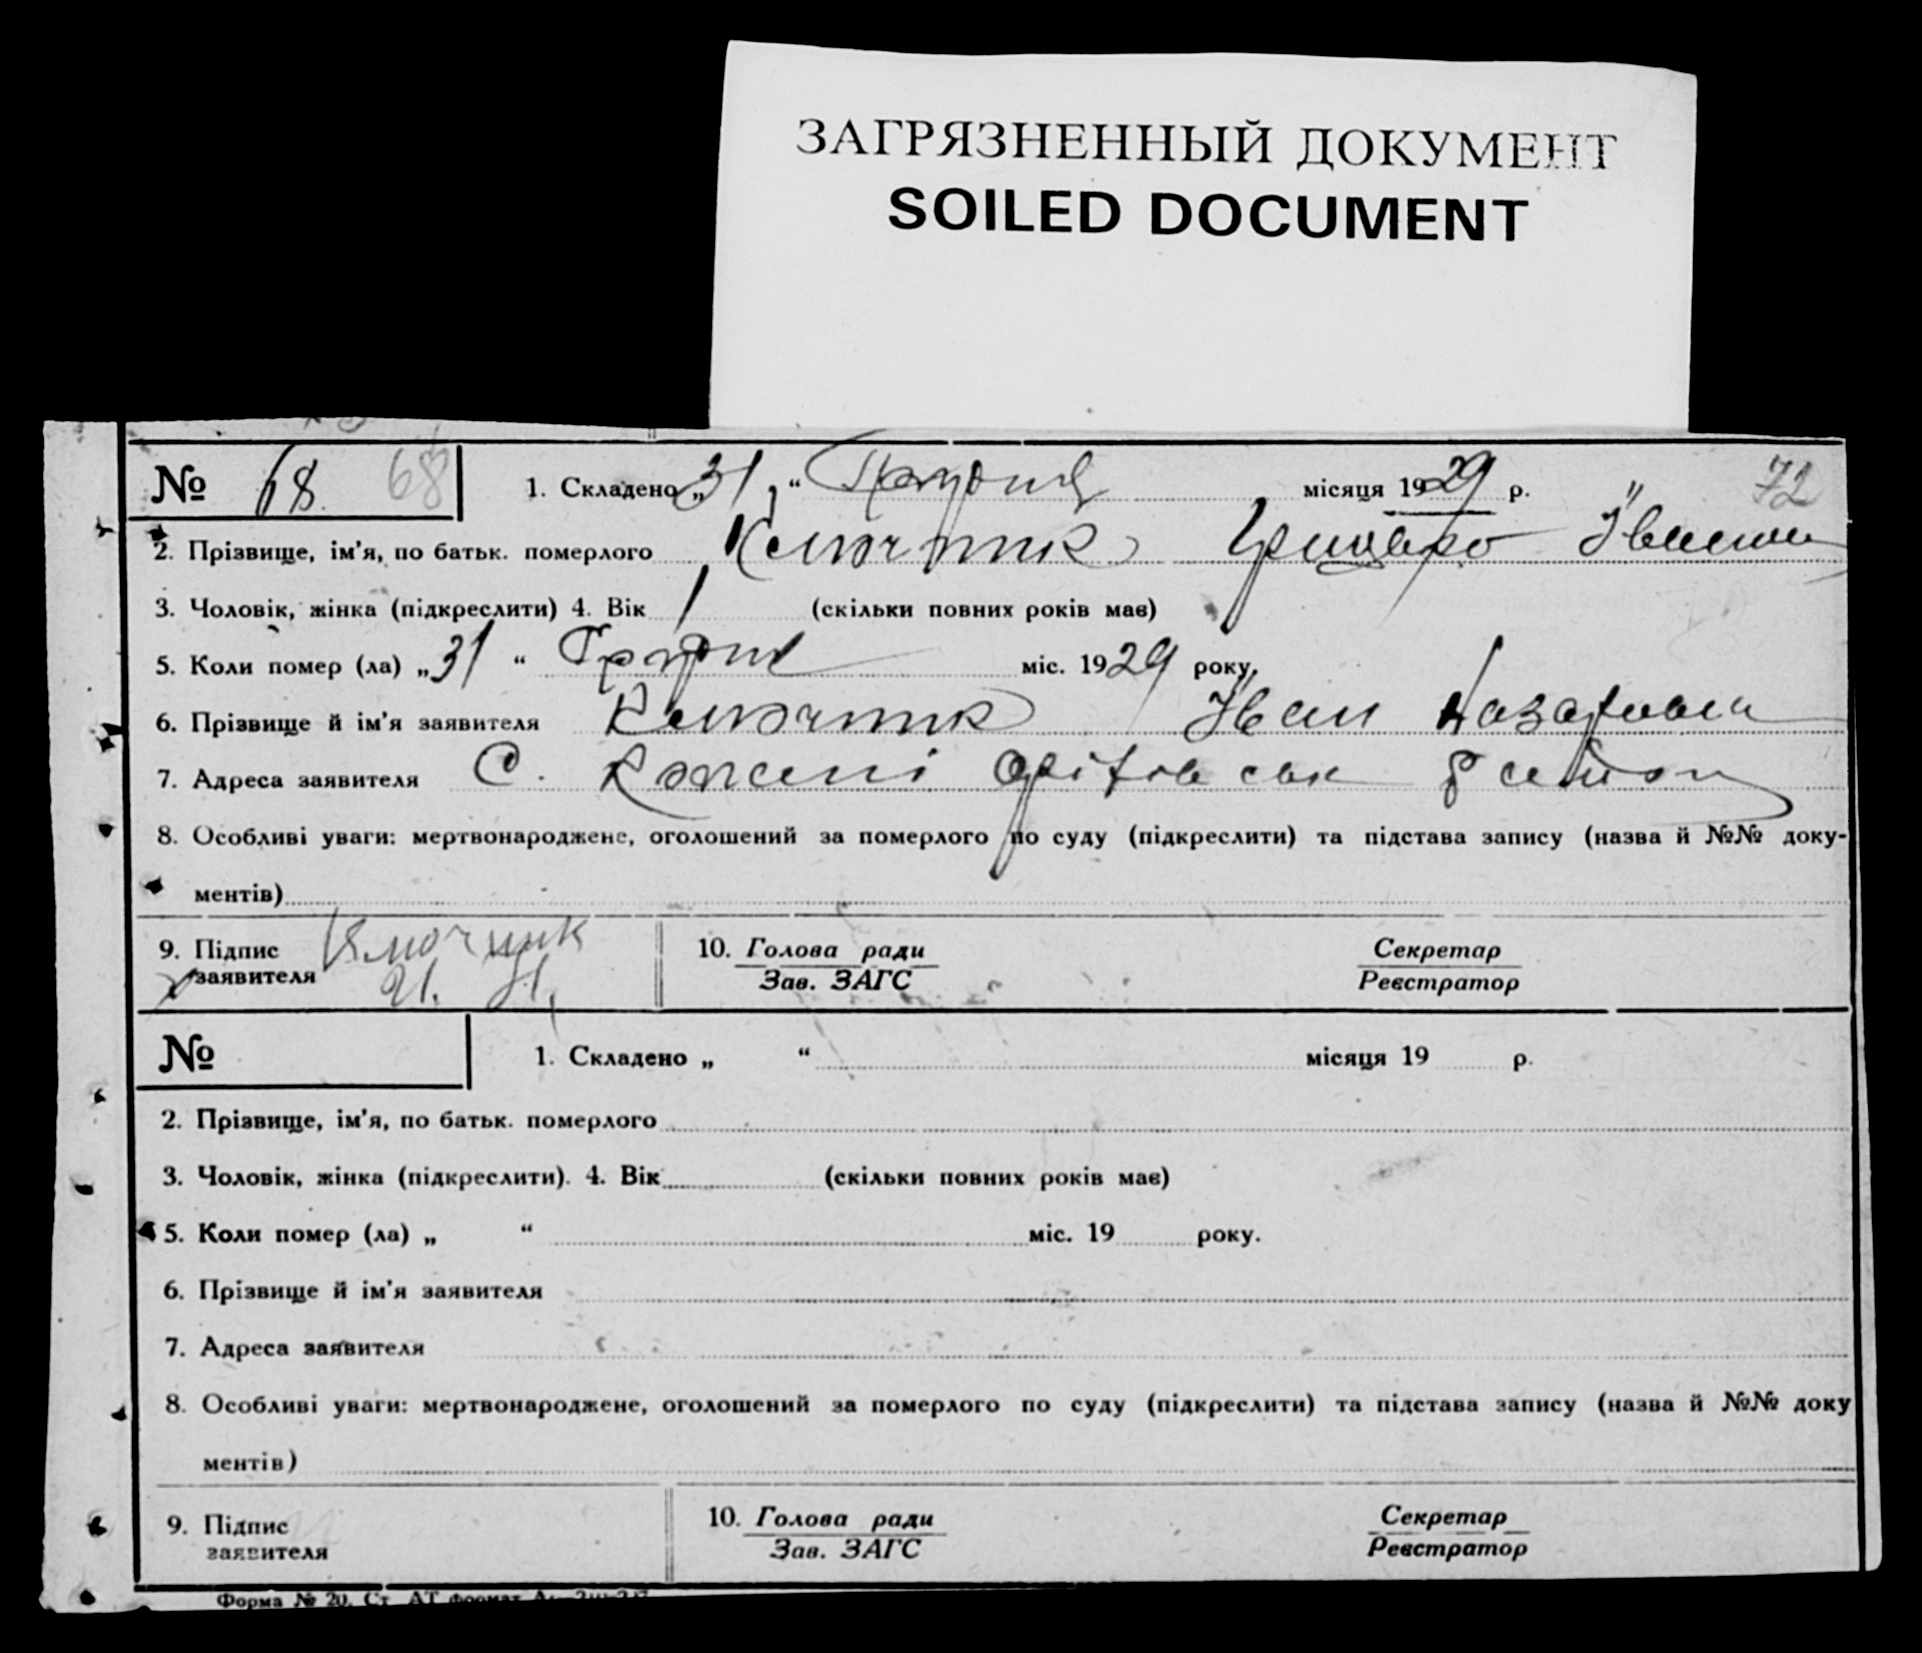 ЗАГРЯЗНЕННЫЙ ДОКУМЕНТ
SOILED DOCUMENT
№ 68. 68 1. Складено „31“ Грудня місяця 1929 р. 72
2. Прізвище, ім'я, по батьк. померлого
3. Чоловік, жінка (підкреслити) 4. Вік 1 (скільки повних років має)
5. Коли помер (ла) „31“ Грудня міс. 1929 року,
6. Прізвище й ім'я заявителя Іван Назарович
7. Адреса заявителя С. район
8. Особливі уваги: мертвонароджене, оголошений за померлого по суду (підкреслити) та підстава запису (назва й №№ доку-
ментів)
9. Підпис заявителя 10. Голова ради Секретар
Зав. ЗАГС Реєстратор
№ 1. Складено „ “ місяця 19 р.
2. Прізвище, ім'я, по батьк. померлого
3. Чоловік, жінка (підкреслити). 4. Вік (скільки повних років має)
5. Коли помер (ла) „ “ міс. 19 року.
6. Прізвище й ім'я заявителя
7. Адреса заявителя
8. Особливі уваги: мертвонароджене, оголошений за померлого по суду (підкреслити) та підстава запису (назва й №№ доку
ментів)
9. Підпис заявителя 10. Голова ради Секретар
Зав. ЗАГС Реєстратор
Форма № 20. Ст. АТ формат